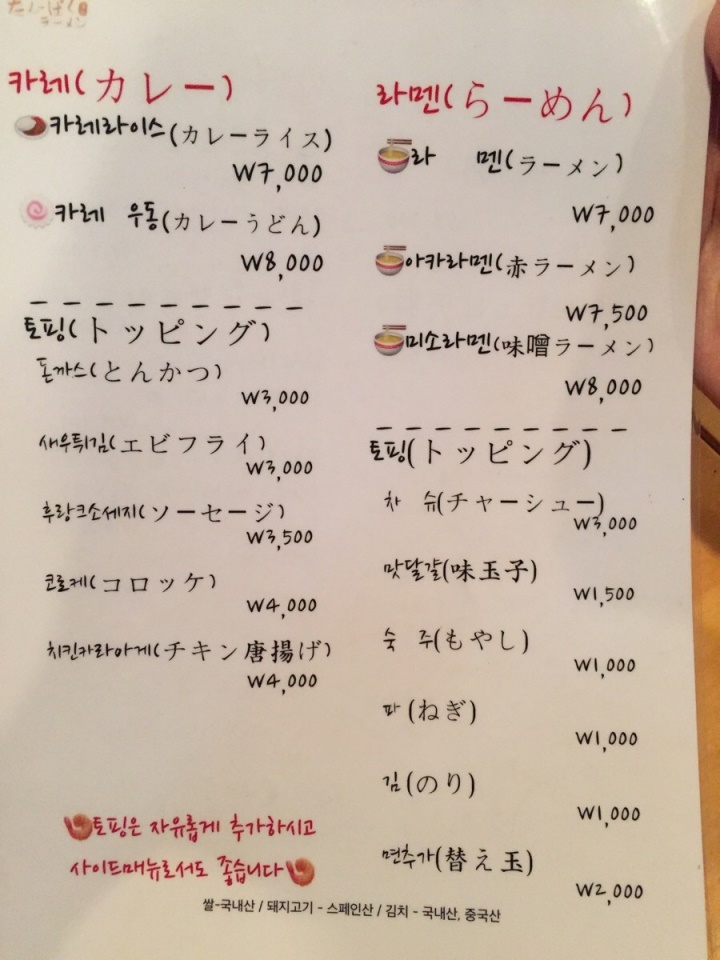 たんぽぽ
ラーメン
카레(カレー)
카레라이스(カレーライス)
₩7,000
카레 우동(カレーうどん)
₩8,000
토핑(トッピング)
돈까스(とんかつ)
₩3,000
새우튀김(エビフライ)
₩3,000
후랑크소세지(ソーセージ)
₩3,500
코로케(コロッケ)
₩4,000
치킨카라아게(チキン唐揚げ)
₩4,000
토핑은 자유롭게 추가하시고
사이드매뉴로서도 좋습니다
라멘(らーめん)
라 멘(ラーメン)
₩7,000
아카라멘(赤ラーメン)
₩7,500
미소라멘(味噌ラーメン)
₩8,000
토핑(トッピング)
차 슈(チャーシュー)
₩3,000
맛달걀(味玉子)
₩1,500
숙 주(もやし)
₩1,000
파(ねぎ)
₩1,000
김(のり)
₩1,000
면추가(替え玉)
₩2,000
쌀-국내산 / 돼지고기 - 스페인산 / 김치 - 국내산, 중국산